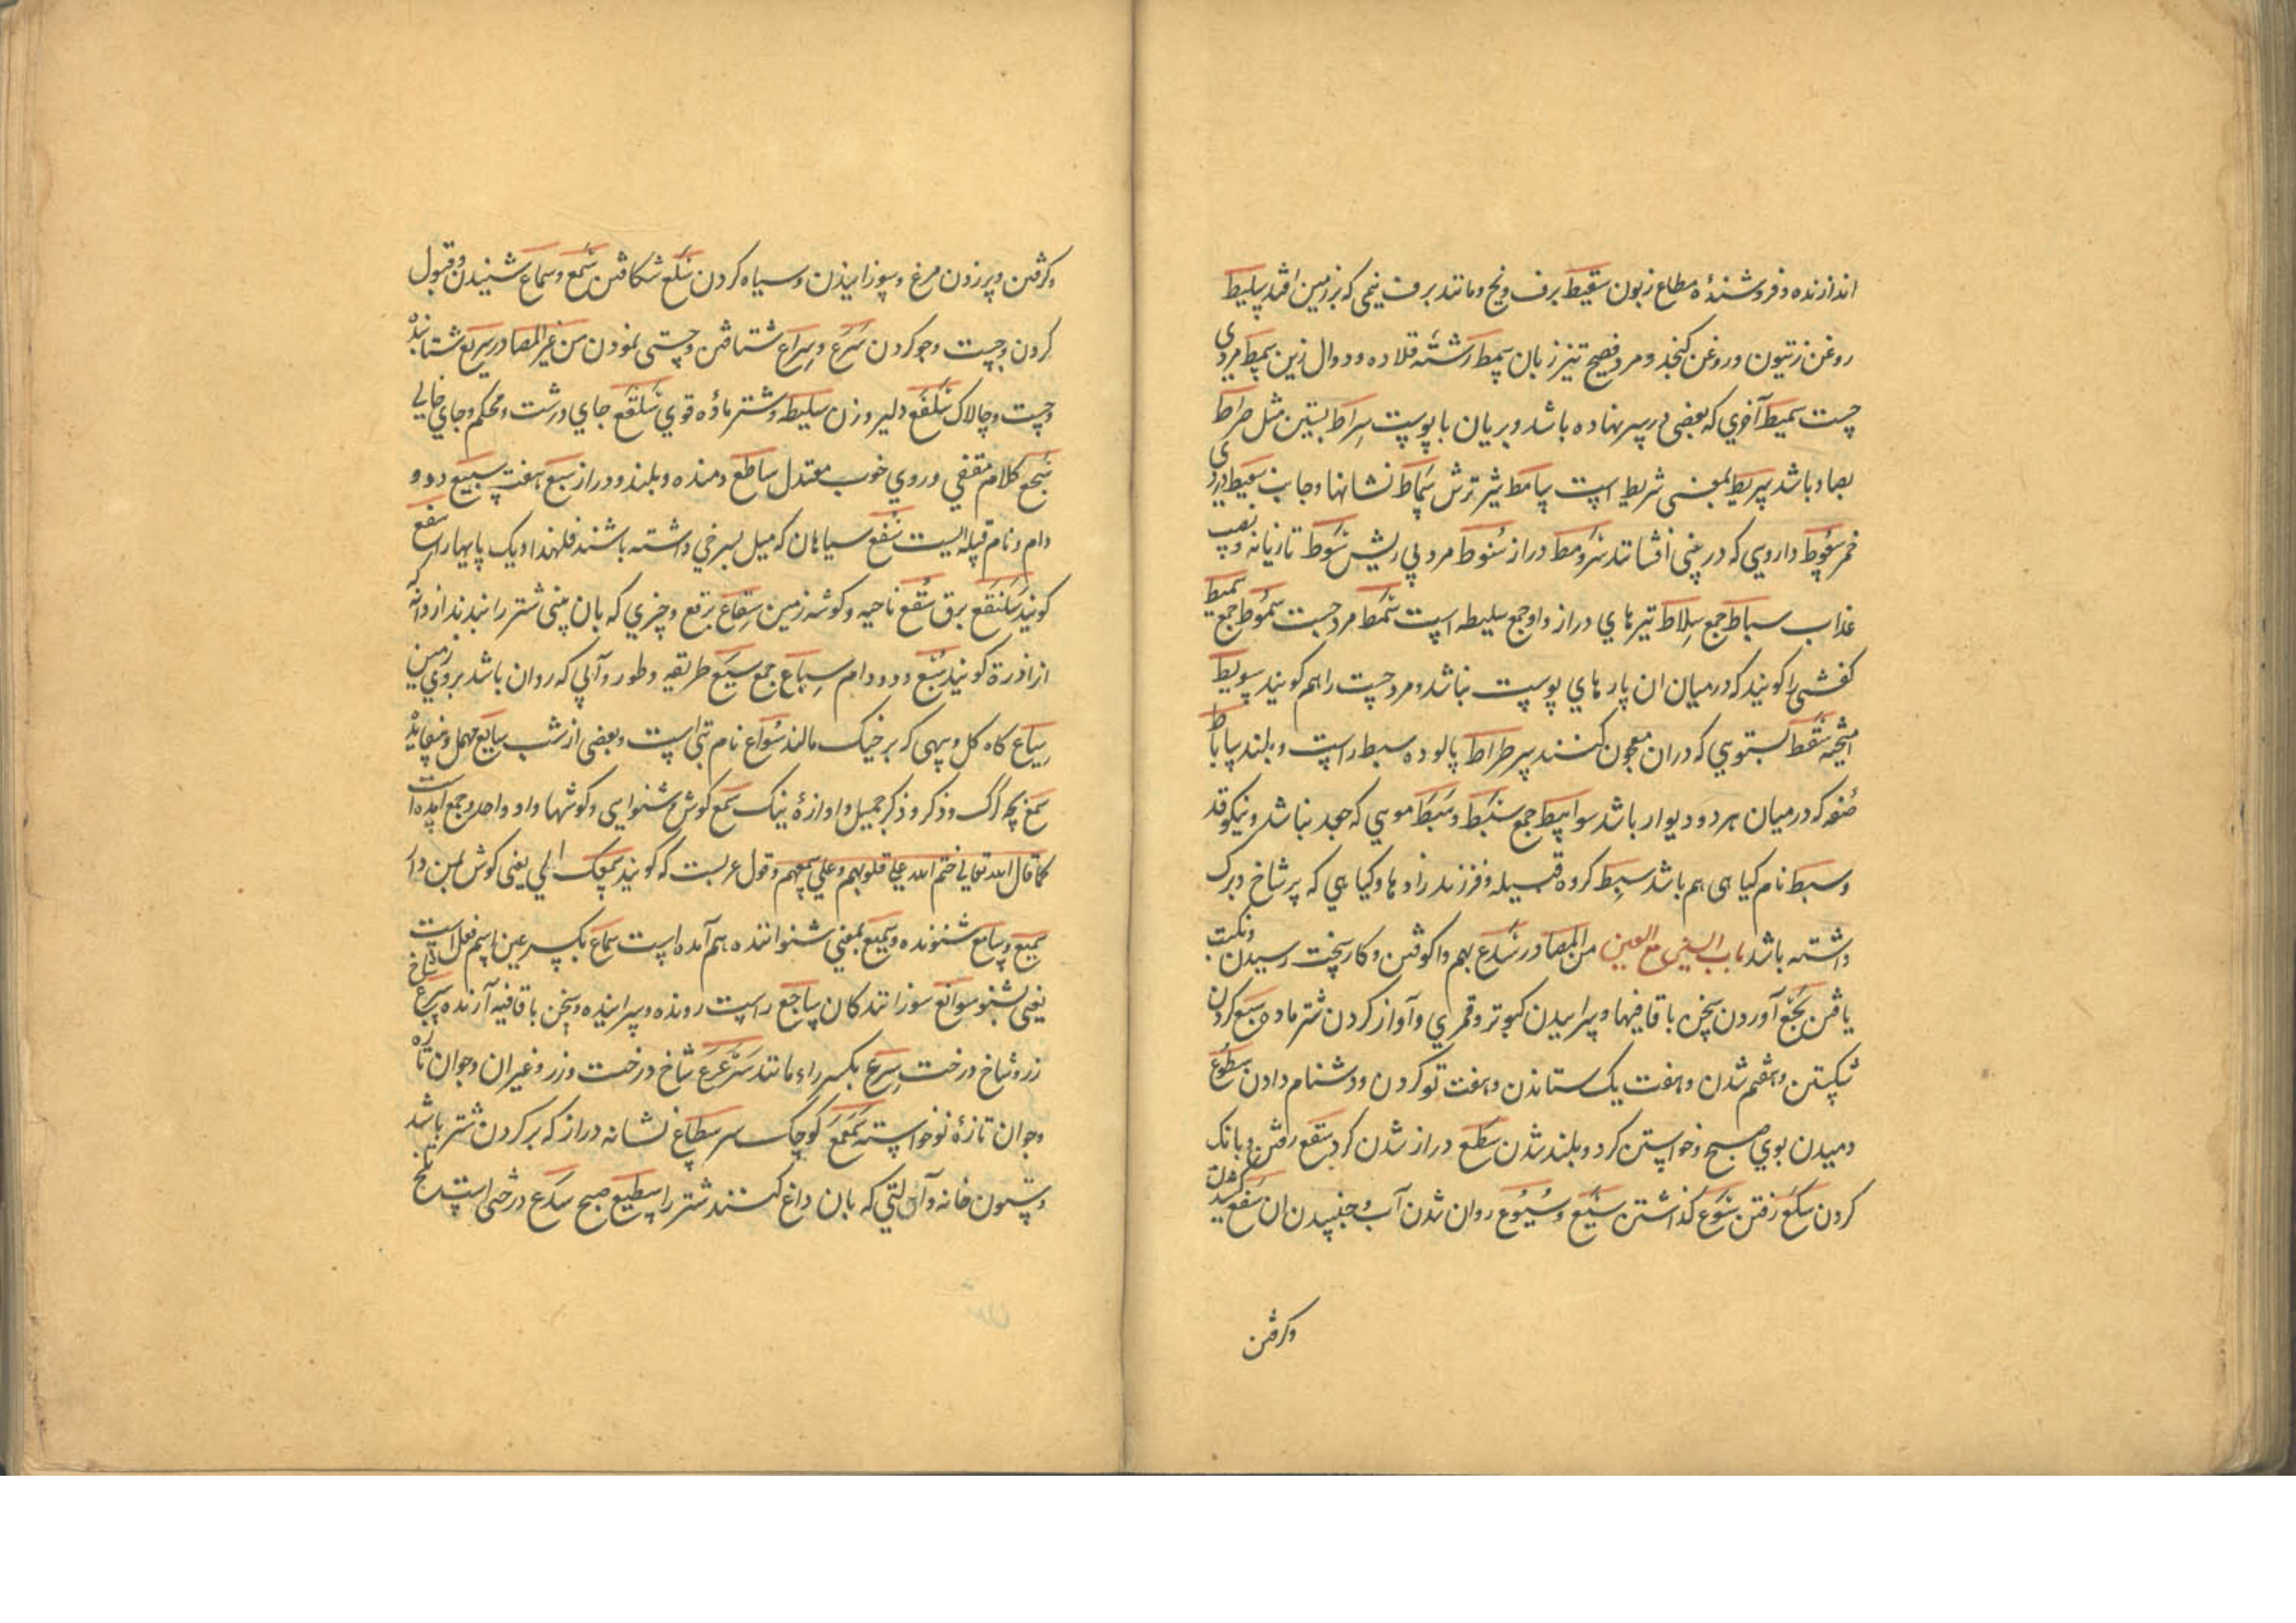 اندازنده و فروشندهٔ مطاع زبون سقیط برف و یخ و مانند برف یخی که بر زمین افتد سلیط
روغن زیتون و روغن کنجد و مرد فصیح تیز زبان سمط رشته قلاده و دوال زین سمط مردی
چست سمیط آجری که بعضی بر سر نهاده باشد و بریان با پوست سراط بستین مثل صراط
بصاد باشد سریط بمعنی شریط است سامط شیر ترش سماط نشانها و جانب سعیط دردی
خمر سعوط دارویی که در بینی افشانند سرومط دراز سنوط مرد بی ریش سوط تازیانه و نصیب
عذاب سباط جمع سلاط تیرهای دراز و او جمع سلیطه است سمط مرد چست سموط جمع سمیط
کفشی را کویند که درمیان ان پارهای پوست نباشد و مرد چست را هم کویند سویط
امیخته سقط بستویی که دران معجون کنند سرطراط پالوده سبط راست و بلند ساباط
صفه که درمیان هر دو دیوار باشد سوابیط جمع سبط و سبط مویی که جعد نباشد و نیکو قد
و سبط نام کیاهی هم باشد سبط کروه قبیله و فرزند زادها و کیاهی که پر شاخ و برک
داشته باشد باب السین مع العین من المصادر سدع بهم واکوفتن و کار سخت رسیدن و نکبت
یافتن سجع آوردن سخن با قافیها و سراییدن کبوتر و قمری و آواز کردن شتر ماده سبع کردن
شکستن و هفتم شدن و هفت یک ستاندن و هفت تو کردن و دشنام دادن سطوع
دمیدن بوی صبح و خواستن کرد و بلند شدن سطع دراز شدن کردن سقع رفتن و بانک
کردن سکع رفتن سوع کذاشتن سیع و سیوع روان شدن آب و جنبیدن ان سفع کشیدن
وکرفتن
وکرفتن و پر زدن مرغ و سوزانیدن و سیاه کردن سلع شکافتن سمع و سماع شنیدن و قبول
کردن و چست و جو کردن سرع و سراع شتافتن و چستی نمودن من غیر المصادر سریع شتابنده
و چست و چالاک سلفع دلیر و زن سلیطه و شتر مادهٔ قوی سلقع جای درشت و محکم و جای خالی
سجع کلام مقفی و روی خوب معتدل ساطع دمنده و بلند و دراز سبع هفت سبیع دد و
دام و نام قبله ایست سفع سیاهان که میل بسرخی داشته باشند فلهذا دیک پایها را سفع
کویند سلنقع برق سقع ناحیه و کوشه زمین سقاع برقع و چیزی که بان بینی شتر را بندند از دانه
ازادرة کویند سبع دد و دام سباع جمع سیع طریقه و طور و آبی که روان باشد بر روی زمین
سیاع کاه کل و پیهی که بر خیک مالند سواع نام بتی است و بعضی از شب سایع مهمل و بیفایده
سمع بچه کرک و ذکر و ذکر جمیل و اوازهٔ نیک سمع کوش و شنوایی و کوشها و او واحد و جمع امده است
کما قال الله تعالی ختم الله علی قلوبهم و علی سمعهم و قول عربست که کویند سمعک الی یعنی کوش بمن دار
سمیع و سامع شنونده و سمیع بمعنی شنواننده هم آمده است سماع بکسر عین اسم فعل است
یعنی بشنو سوافع سوزانندکان ساجع راست رونده و سراینده و سخن با قافیه آرنده سرع شاخ
رز و شاخ درخت سرع بکسر راء مانند سرعرع شاخ درخت و زر و غیر ان و جوان تازه
و جوان تازهٔ نوخواسته سمعمع کوچک سر سطاع نشانه دراز که بر کردن شتر باشد
و ستون خانه و آلتی که بان داغ کنند شتر را سطیع صبح سلع درختی است تلخ